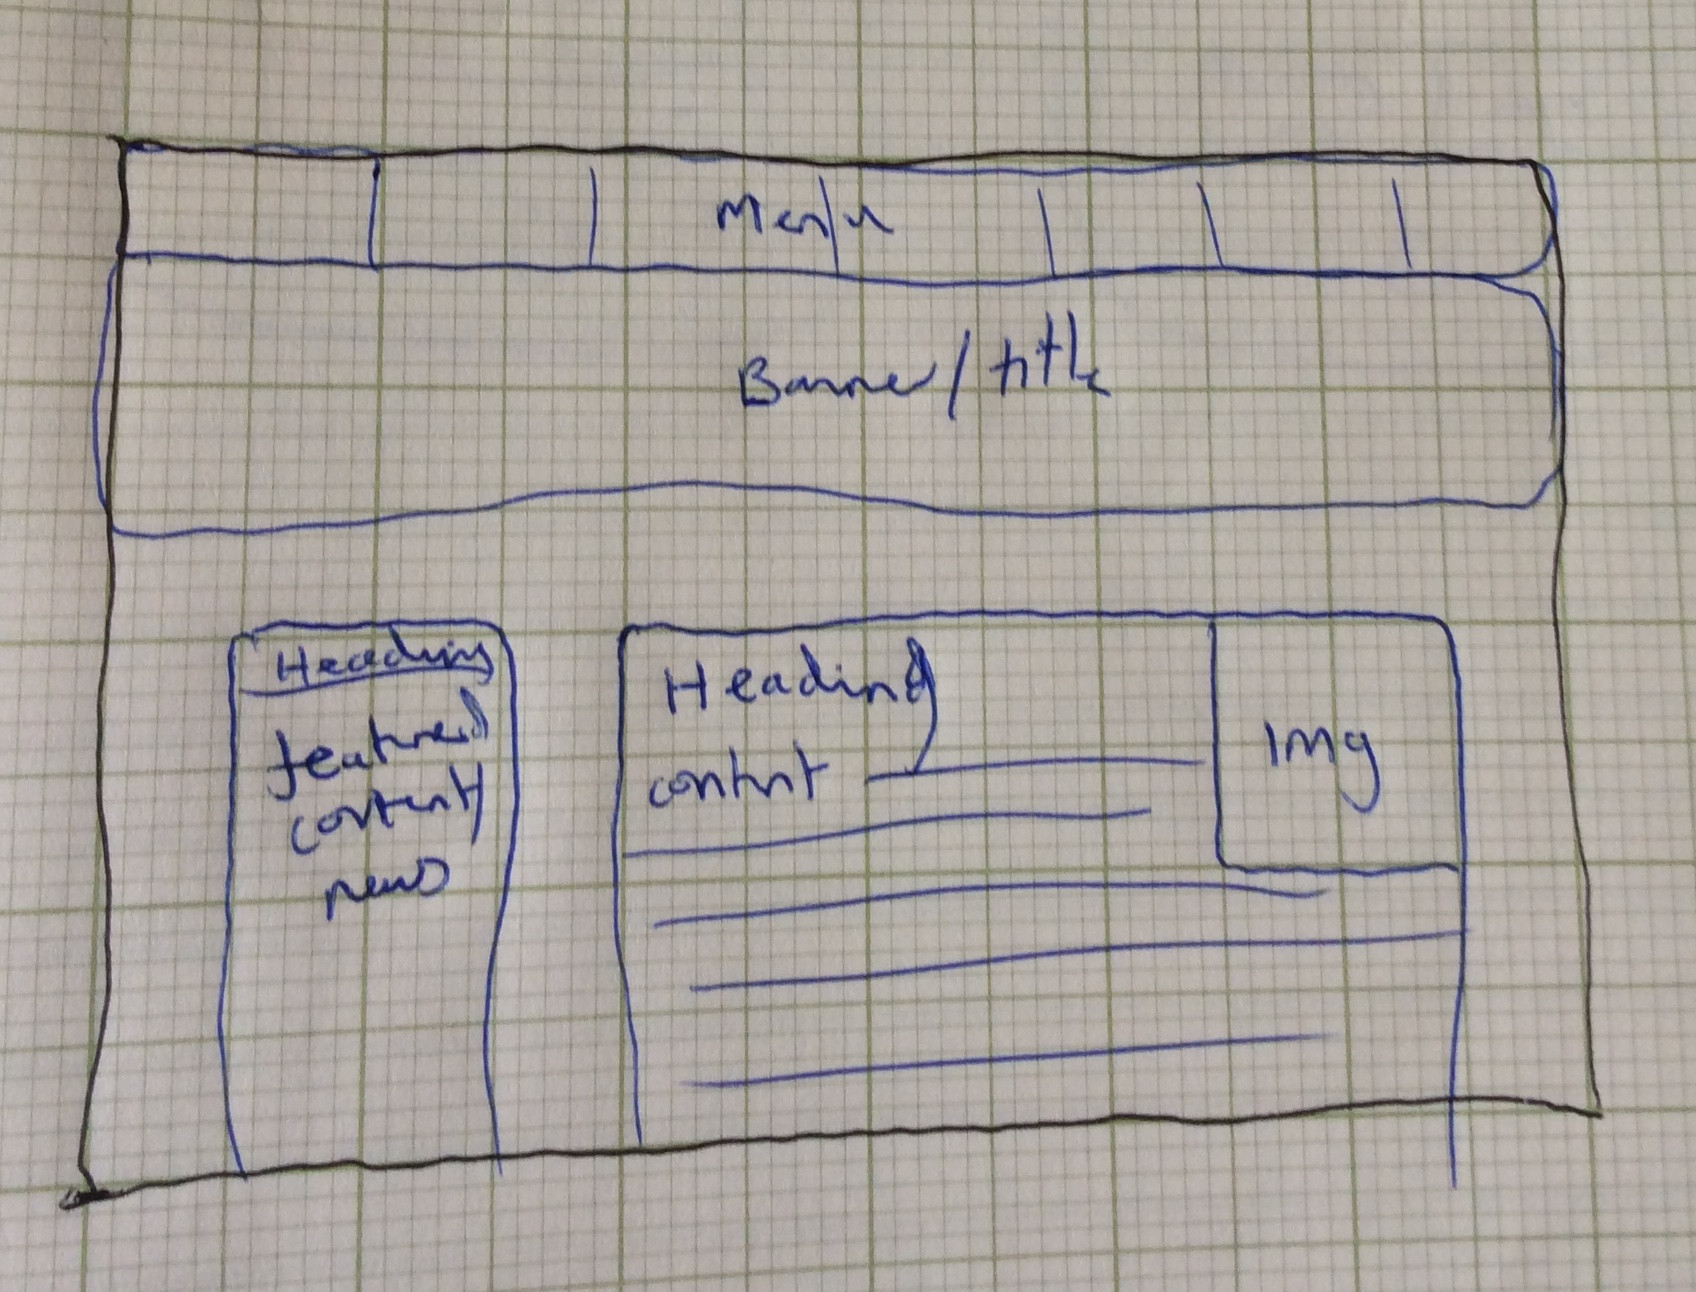 Menu
Banner/title
Heading
featured
content/
news
Heading
content
Img